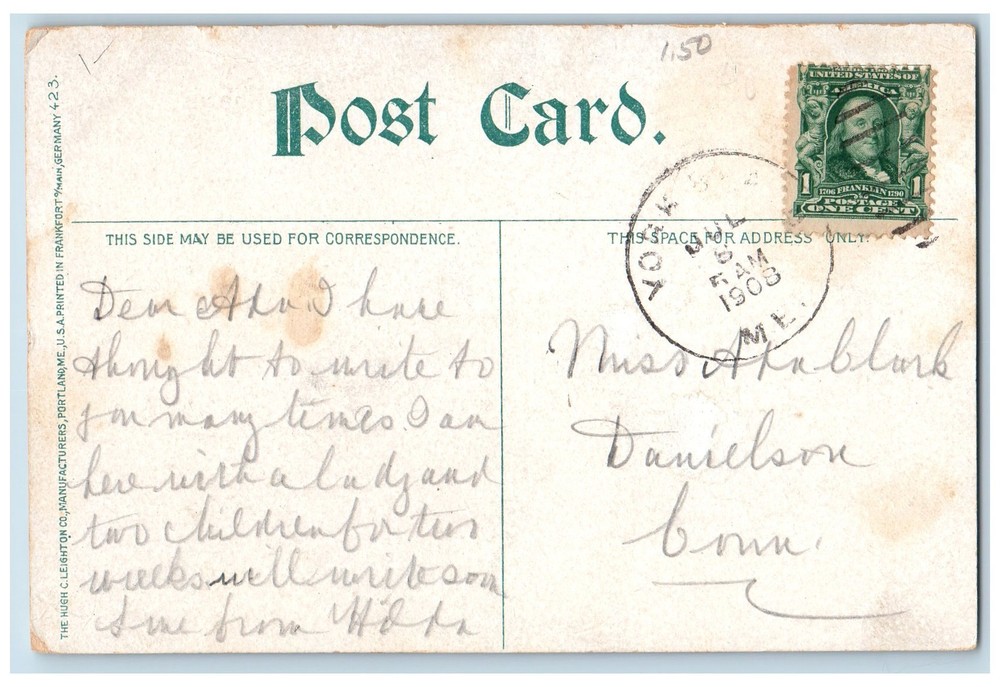 1.50
Post Card.
UNITED STATES OF
AMERICA
1 1706 FRANKLIN 1790 1
POSTAGE
ONE CENT
YORK
JUL
6
AM
1908
ME.
THIS SIDE MAY BE USED FOR CORRESPONDENCE.
THIS SPACE FOR ADDRESS ONLY.
THE HUGH C. LEIGHTON CO., MANUFACTURERS, PORTLAND, ME., U.S.A. PRINTED IN FRANKFORT o/MAIN, GERMANY 423.
Dear I have
thought to write to
you many times. I am
here with a lady and
two children for two
weeks will write soon
from Hilda
Miss Clark
Danielson
Conn.